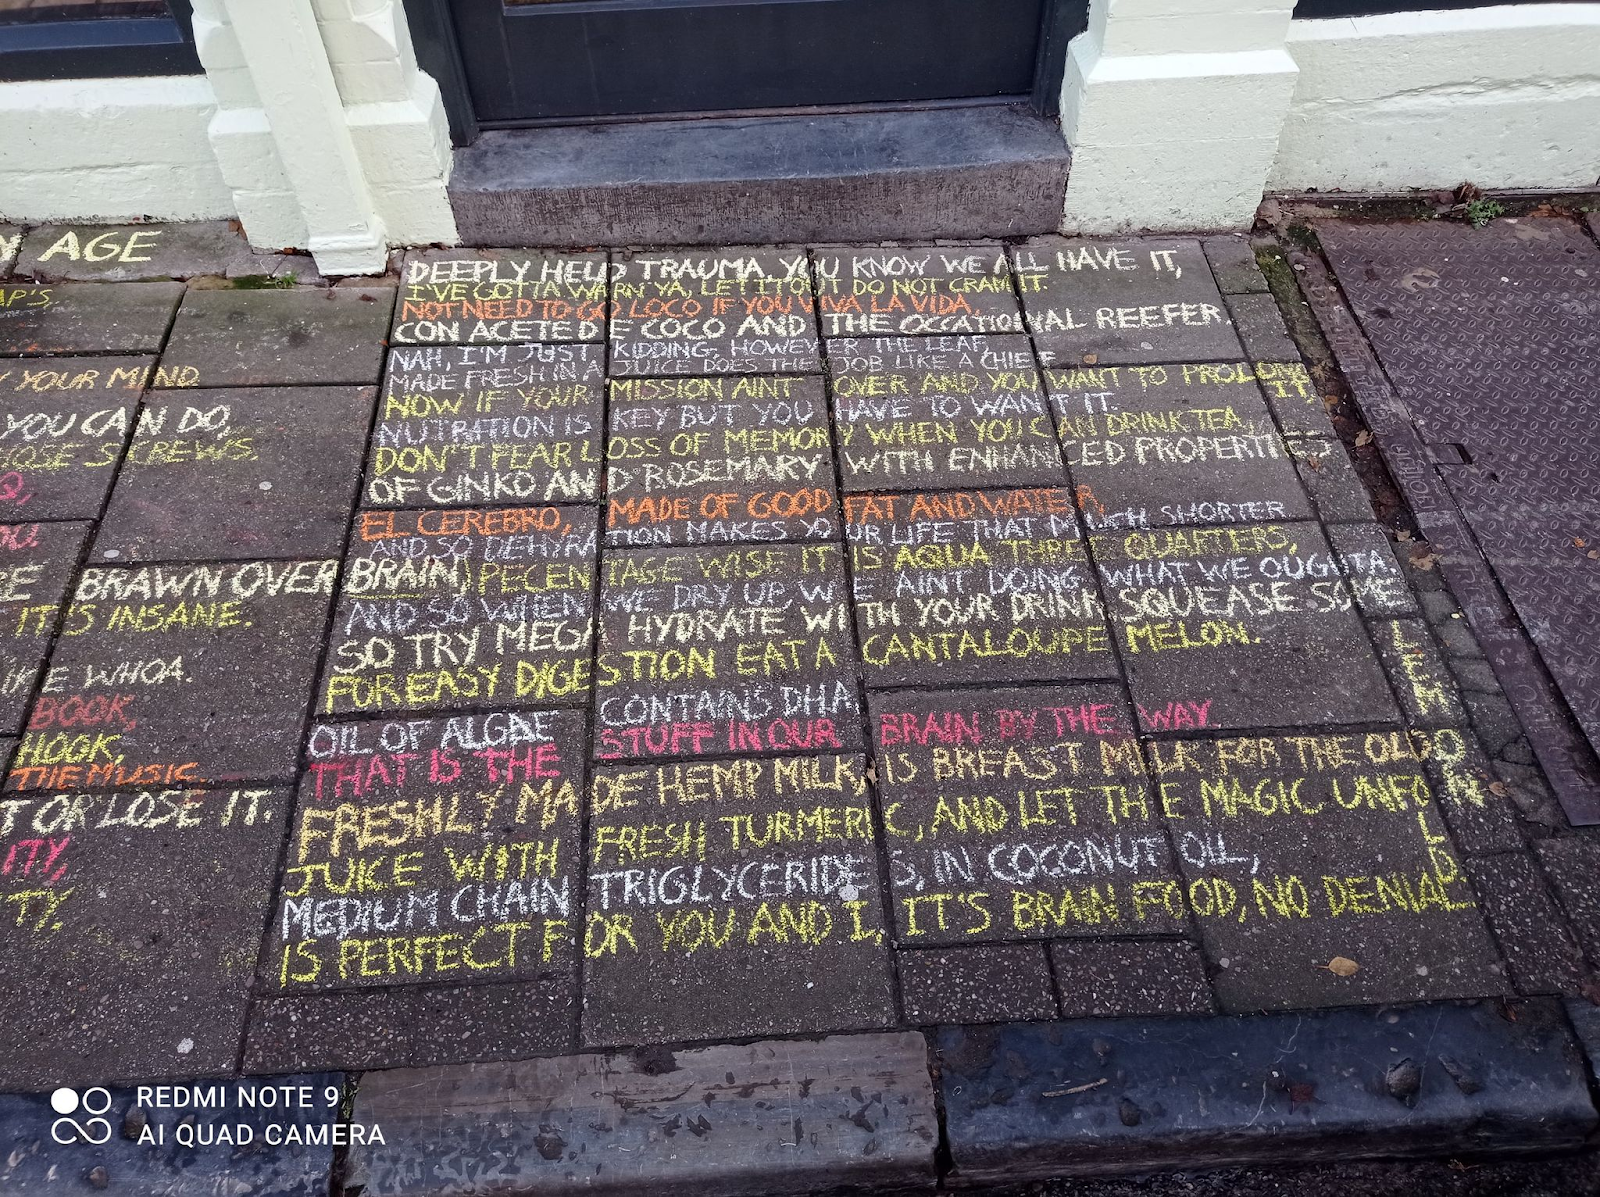 Y AGE
AP'S.
Y YOUR MIND.
YOU CAN DO,
OSE SCREWS.
Q,
OU.
RE BRAWN OVER BRAIN,
IT'S INSANE.
IKE WHOA.
BOOK,
HOOK,
THE MUSIC.
T OR LOSE IT.
ITY,
TY,
DEEPLY HELD TRAUMA, YOU KNOW WE ALL HAVE IT,
I'VE GOTTA WARN YA, LET IT OUT DO NOT CRAM IT.
NOT NEED TO GO LOCO IF YOU VIVA LA VIDA,
CON ACETE DE COCO AND THE OCCATIONAL REEFER.
NAH, I'M JUST KIDDING, HOWEVER THE LEAF,
MADE FRESH IN A JUICE DOES THE JOB LIKE A CHIEF
NOW IF YOUR MISSION AINT OVER AND YOU WANT TO PROLONG IT,
NUTRATION IS KEY BUT YOU HAVE TO WANT IT.
DON'T FEAR LOSS OF MEMORY WHEN YOU CAN DRINK TEA,
OF GINKO AND ROSEMARY WITH ENHANCED PROPERTIES
EL CEREBRO, MADE OF GOOD FAT AND WATER,
AND SO DEHYRATION MAKES YOUR LIFE THAT MUCH SHORTER
PECENTAGE WISE IT IS AQUA THREE QUARTERS,
AND SO WHEN WE DRY UP, WE AINT DOING WHAT WE OUGHTA.
SO TRY MEGA HYDRATE WITH YOUR DRINK SQUEASE SOME LEMON
FOR EASY DIGESTION EAT A CANTALOUPE MELON.
OIL OF ALGAE CONTAINS DHA
THAT IS THE STUFF IN OUR BRAIN BY THE WAY.
FRESHLY MADE HEMP MILK, IS BREAST MILK FOR THE OLD
JUICE WITH FRESH TURMERIC, AND LET THE MAGIC UNFOLD
MEDIUM CHAIN TRIGLYCERIDES, IN COCONUT OIL,
IS PERFECT FOR YOU AND I, IT'S BRAIN FOOD, NO DENIAL
REDMI NOTE 9
AI QUAD CAMERA